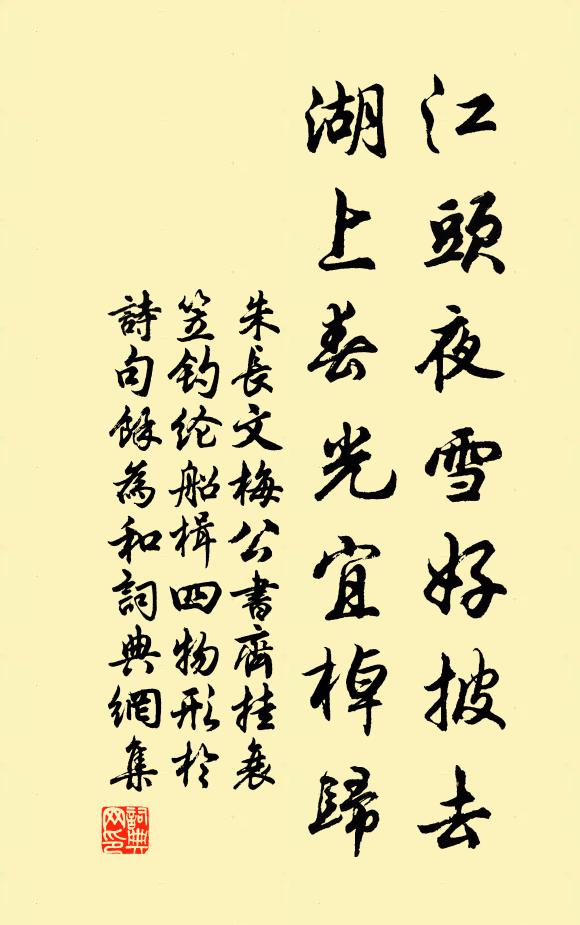 江頭夜雪好披去
湖上春光宜棹歸
朱長文梅公書齊挂衰
笠钓纶船楫四物形於
詩句餘為和詞典網集
詞典
网印